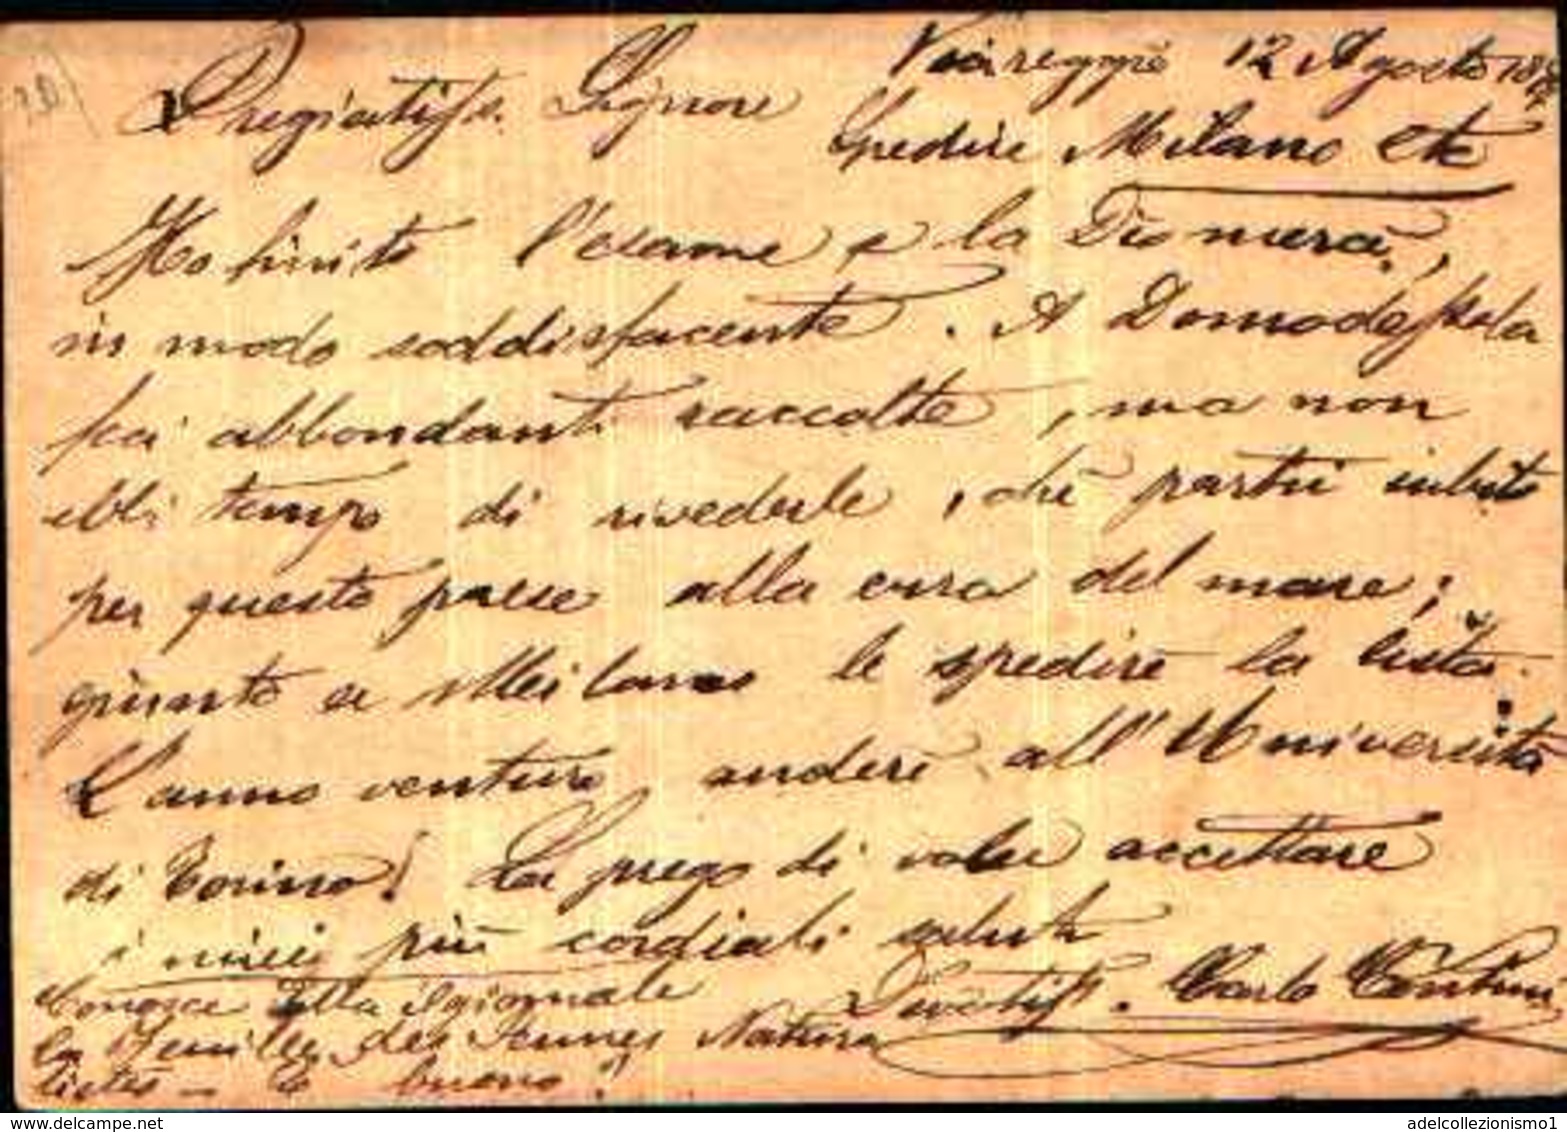 Viareggio 12 Agosto
Pregiatiss. Signore
Spedire Milano etc
Ho finito l'esame e la
in modo soddisfacente. A Domodossola
feci abbondanti raccolte, ma non
ebbi tempo di rivederle, chè partii subito
per questo paese alla cura del mare;
giunto a Milano le spedirò la lista.
L'anno venturo andrò all'Università
di Torino! La prego di voler accettare
i miei più cordiali saluti
Devotiss. Carlo
Conosce Ella il giornale
La Feuille des Jeunes Natura
listes - è buono?
adelcollezionismo1